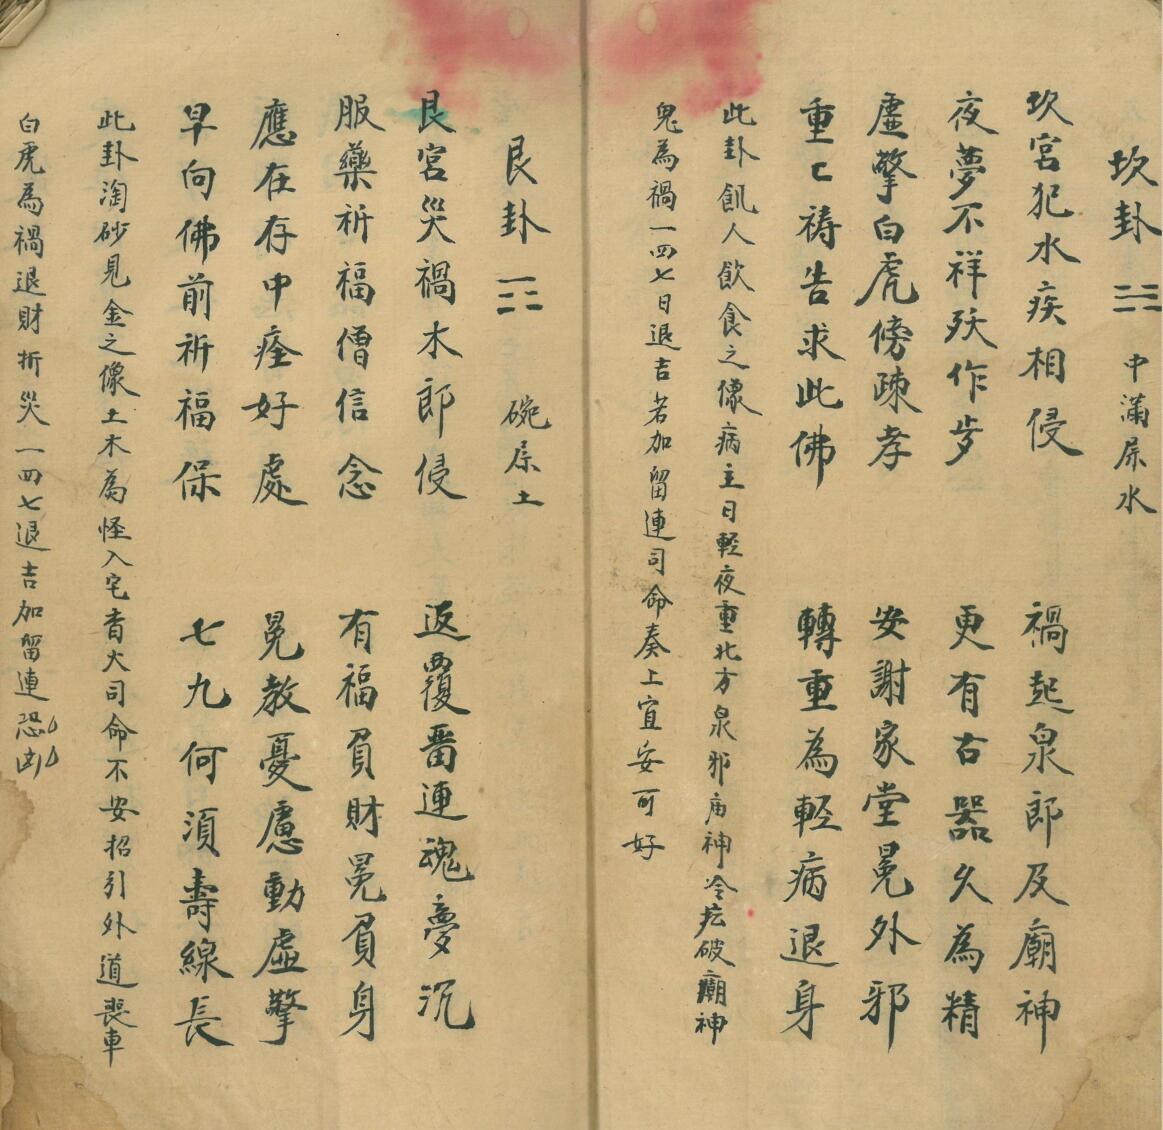 坎卦 中滿屎水
坎宮犯水疾相侵 禍起泉郎及廟神
夜夢不祥殀作歩 更有古器久為精
虛擎白虎傍疎孝 安謝家堂冕外邪
重〻祷告求此佛 轉重為輕病退身
此卦飢人飲食之像病主日輕夜重北方泉邪庙神冷疘破廟神
鬼為禍一四七日退吉若加留連司命奏上宜安可好
艮卦 碗屎土
艮宮災禍木郎侵 返覆畱連魂夢沉
服藥祈福僧信念 有福負財冕負身
應在存中痊好處 冕教憂慮動虛擎
早向佛前祈福保 七九何須壽線長
此卦淘砂見金之像土木為怪入宅香火司命不安招引外道喪車
白虎為禍退財折災一四七退吉加留連恐凶